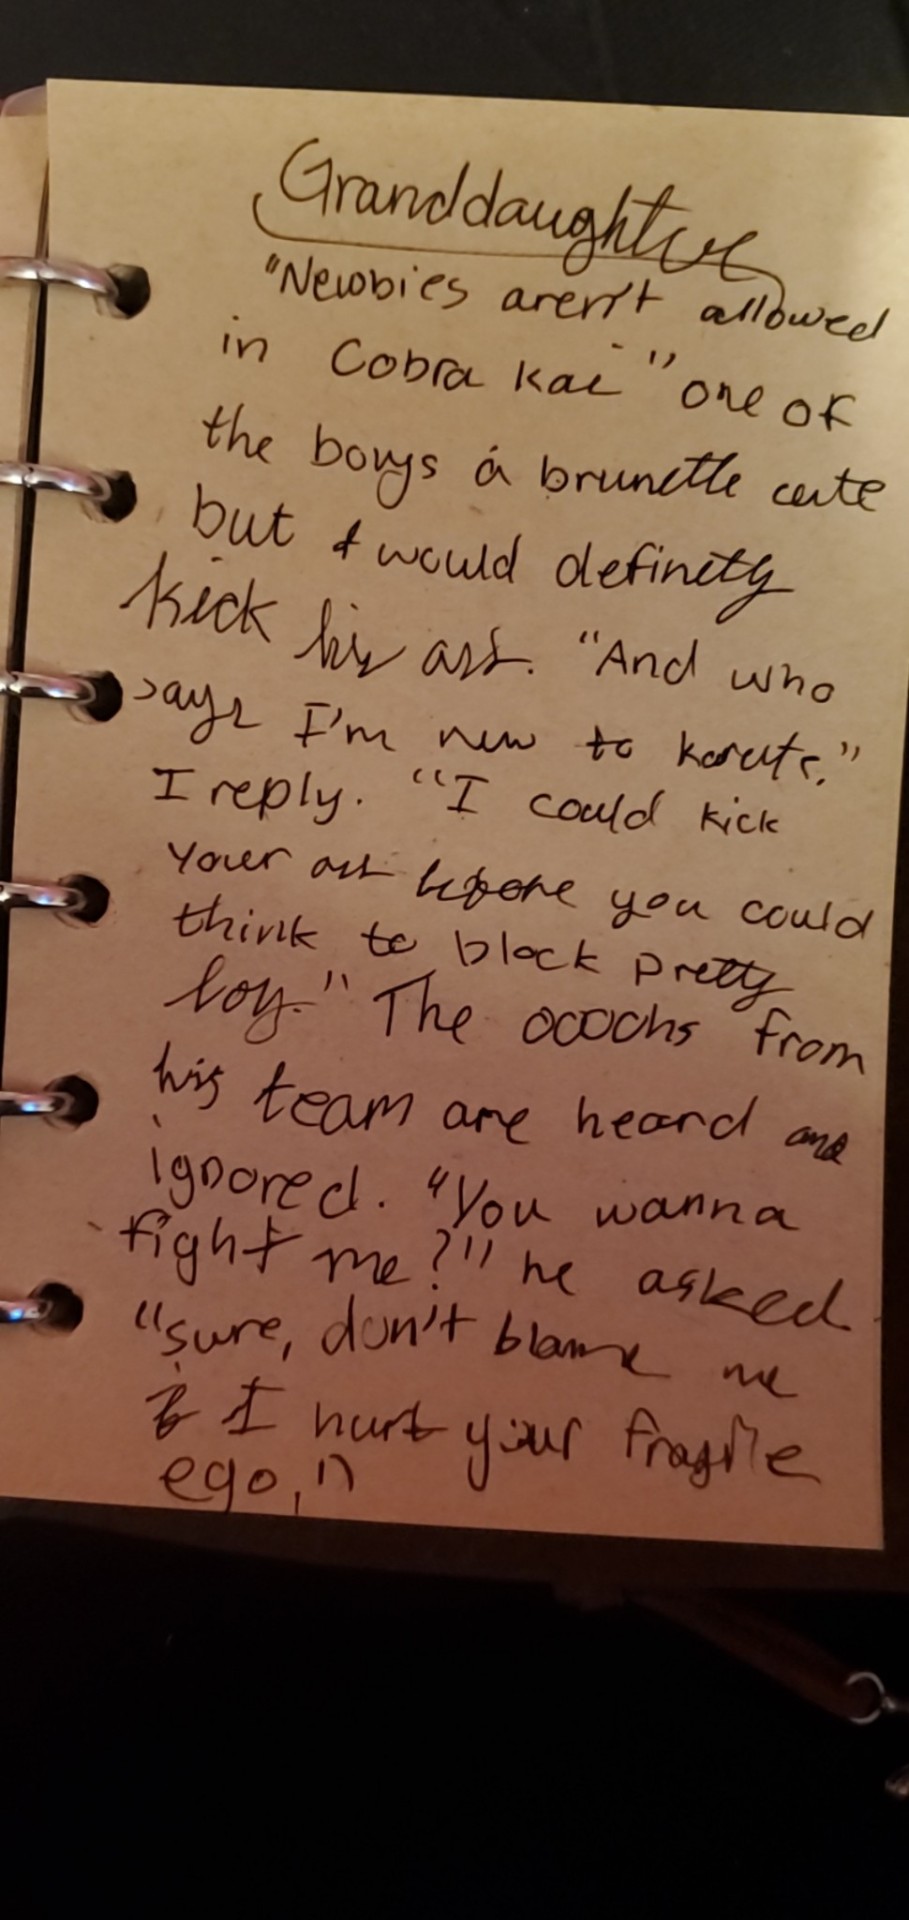 Granddaughter
"Newbies aren't allowed
in Cobra Kai" one of
the boys a brunette cute
but I would definitly
kick his ass. "And who
says I'm new to karate."
I reply. "I could kick
your ass before you could
think to block pretty
boy." The ooooohs from
his team are heard and
ignored. "You wanna
fight me?" he asked
"sure, don't blame me
if I hurt your fragile
ego."